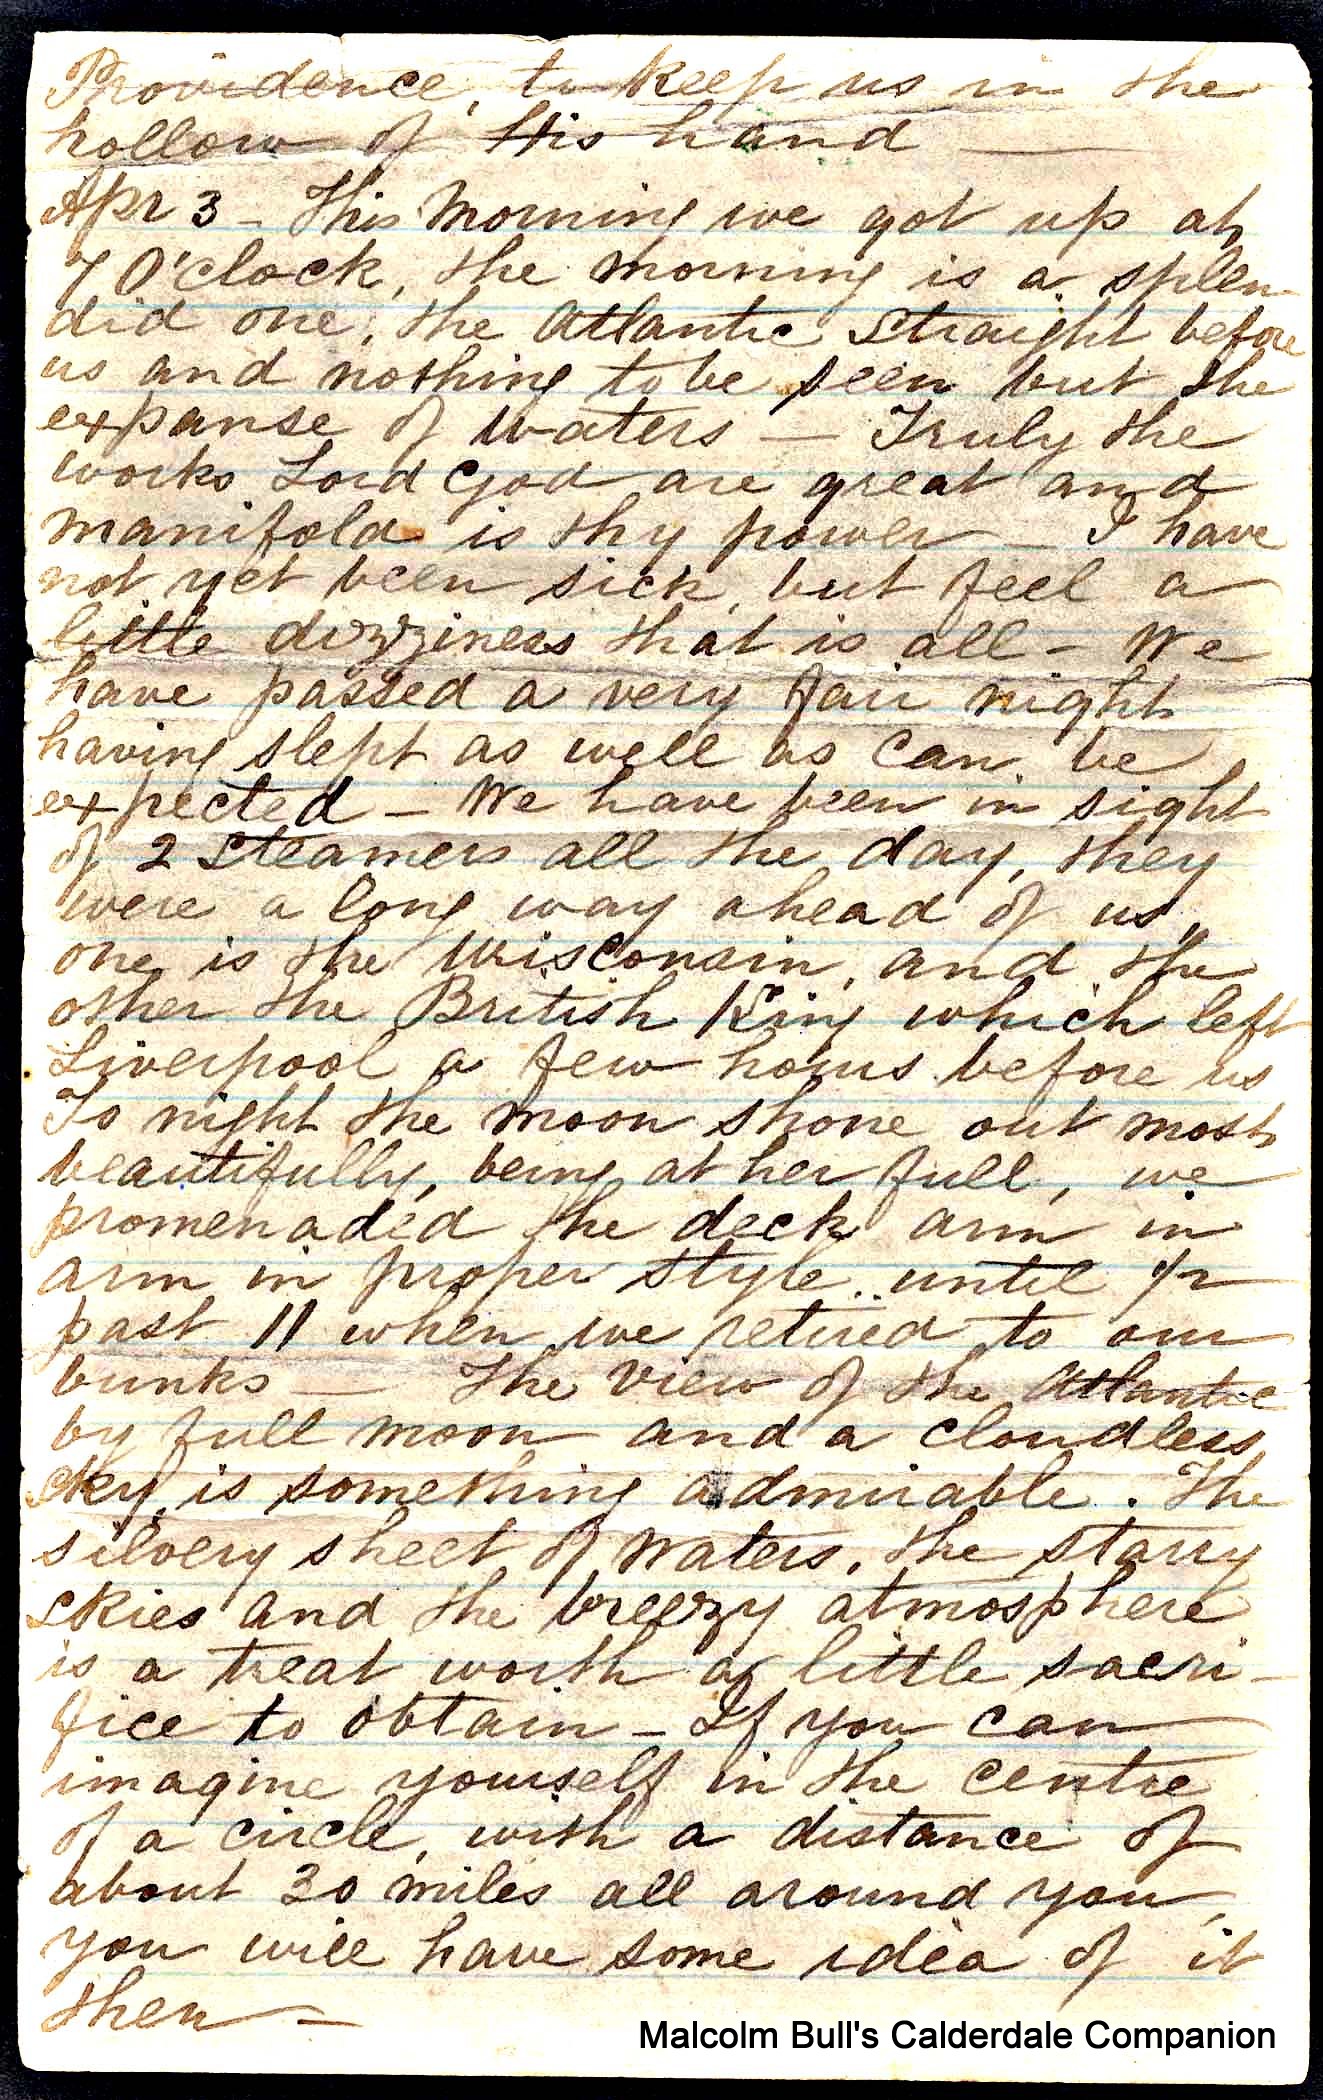 Providence, to keep us in the
hollow of His hand —
Apr 3 – This Morning we got up at
7 O'clock, the morning is a splen
did one, the Atlantic straight before
us and nothing to be seen but the
expanse of waters — Truly the
works Lord God are great and
manifold is thy power – I have
not yet been sick, but feel a
little dizziness that is all – We
have passed a very fair night
having slept as well as can be
expected – We have been in sight
of 2 steamers all the day, they
were a long way ahead of us,
one is the Wisconsin, and the
other the British King which left
Liverpool a few hours before us
To night the moon shone out most
beautifully, being at her full, we
promenaded the deck arm in
arm in proper style.. until 1/2
past 11 when we retired to our
bunks — The view of the Atlantic
by full moon and a cloudless
sky, is something admirable. The
silvery sheet of waters, the starry
skies and the breezy atmosphere
is a treat worth a little sacri-
fice to obtain – If you can
imagine yourself in the centre
of a circle, with a distance of
about 30 miles all around you,
you will have some idea of it
then –
Malcolm Bull's Calderdale Companion